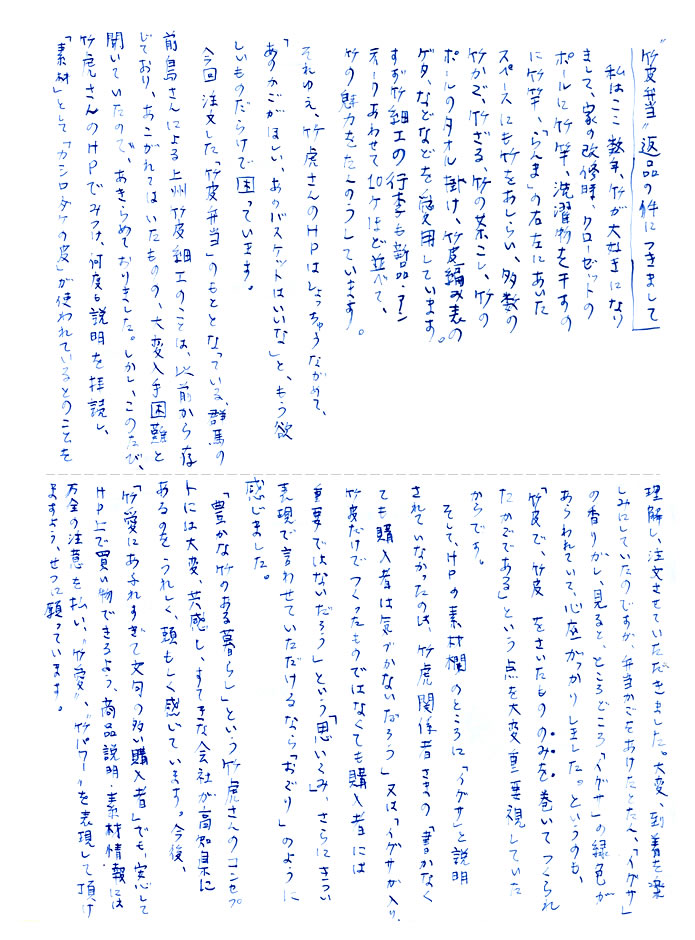 "竹皮弁当"返品の件につきまして
私はここ数年、竹が大好きになり
まして、家の改修時、クローゼットの
ポールに竹竿、洗濯物を干すの
に竹竿、「らんま」の左右にあいた
スペースにも竹をあしらい、多数の
竹かご、竹ざる、竹の茶こし、竹の
ポールのタオル掛け、竹皮編み表の
ゲタ、などなどを愛用しています。
すず竹細工の行李も新品・アン
ティークあわせて10ケほど並べて、
竹の魅力をたんのうしています。
それゆえ、竹虎さんのHPはしょっちゅうながめて、
「あのかごがほしい、あのバスケットはいいな」と、もう欲
しいものだらけで困っています。
今回注文した「竹皮弁当」のもととなっている、群馬の
前島さんによる上州竹皮細工のことは、以前から存
じており、あこがれてはいたものの、大変入手困難と
聞いていたので、あきらめておりました。しかし、このたび、
竹虎さんのHPでみつけ、何度も説明を拝読し、
「素材」として「カシロダケの皮」が使われているとのことを
理解し、注文させていただきました。大変、到着を楽
しみにしていたのですが、弁当かごをあけたとたん、「イグサ」
の香りがし、見ると、ところどころ「イグサ」の緑色が
あらわれていて、心底がっかりしました。というのも、
「竹皮で、竹皮をさいたもののみを巻いてつくられ
たかごである」という点を大変重要視していた
からです。
そして、HPの素材欄のところに「イグサ」と説明
されていなかったのは、竹虎関係者さまの「書かなく
ても購入者は気づかないだろう」又は「イグサが入り、
竹皮だけでつくったものではなくても購入者には
重要ではないだろう」という「思いこみ」、さらにきつい
表現で言わせていただけるなら「おごり」のように
感じました。
「豊かな竹のある暮らし」という竹虎さんのコンセプ
トには大変、共感し、すてきな会社が高知県に
あるのをうれしく、頼もしく感じています。今後、
「竹愛にあふれすぎて文句の多い購入者」でも、安心して
HP上で買い物できるよう、商品説明・素材情報には
万全の注意を払い、"竹愛"、"竹パワー"を表現して頂け
ますよう、せつに願っています。